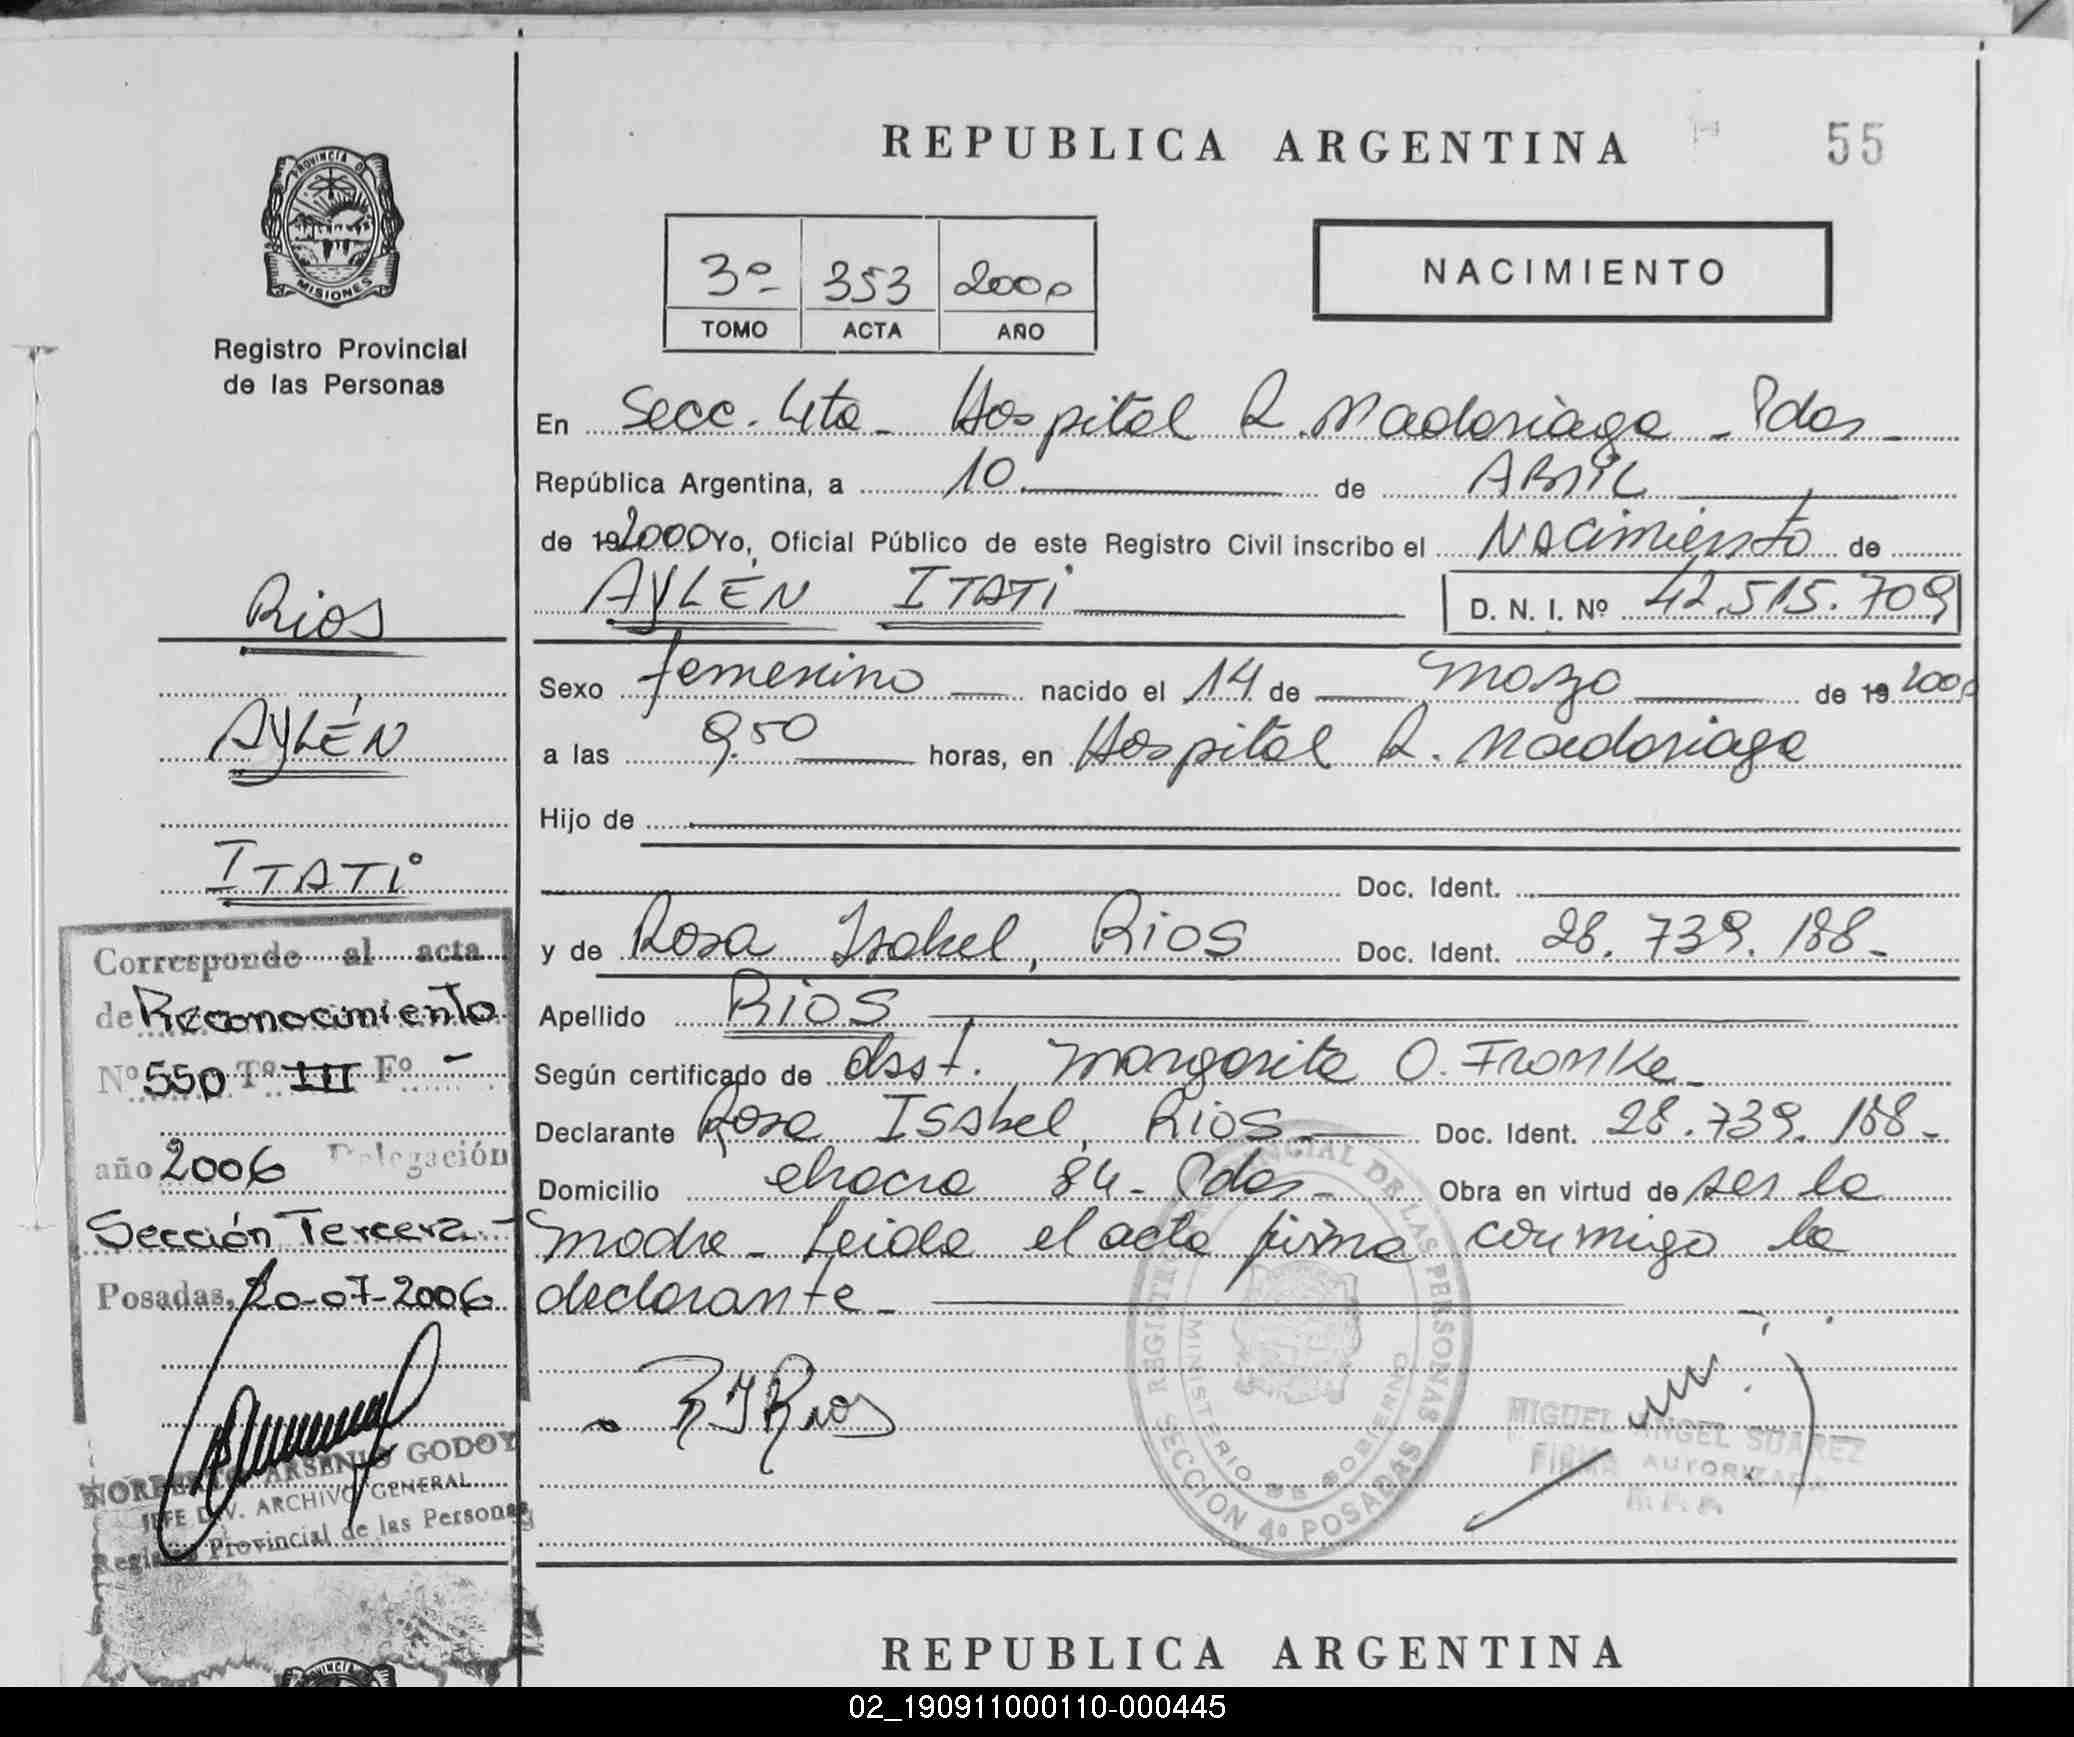 REPUBLICA ARGENTINA
55
PROVINCIA D
MISIONES
Registro Provincial
de las Personas
3º 353 2000
TOMO ACTA AÑO
NACIMIENTO
En Secc. 4ta - Hospital R. Madariaga - Pdas -
República Argentina, a 10 de ABRIL
de 19 2000 Yo, Oficial Público de este Registro Civil inscribo el Nacimiento de
AYLÉN ITATI D. N. I. Nº 42.515.709
Sexo femenino nacido el 14 de Marzo de 19 2000
a las 9.50 horas, en Hospital R. Madariaga
Hijo de
Doc. Ident.
y de Rosa Isabel, Rios Doc. Ident. 28.739.188-
Apellido RIOS
Según certificado de obst. Margarita O. Fronke -
Declarante Rosa Isabel, Rios Doc. Ident. 28.739.188-
Domicilio chacra 84 - Pdas - Obra en virtud de ser la
madre - Leida el acta firma conmigo la
declarante -
R I Rios
REGISTRO PROVINCIAL DE LAS PERSONAS
MINISTERIO DE GOBIERNO
SECCION 4º POSADAS
MIGUEL ANGEL SUAREZ
FIRMA AUTORIZADA
Rios
AYLÉN
ITATI
Corresponde al acta
de Reconocimiento
Nº 550 Tº III Fº -
año 2006 Delegación
Sección Tercera -
Posadas, 20-07-2006
NORBERTO ARSENIO GODOY
JEFE DIV. ARCHIVO GENERAL
Registro Provincial de las Personas
REPUBLICA ARGENTINA
02_190911000110-000445